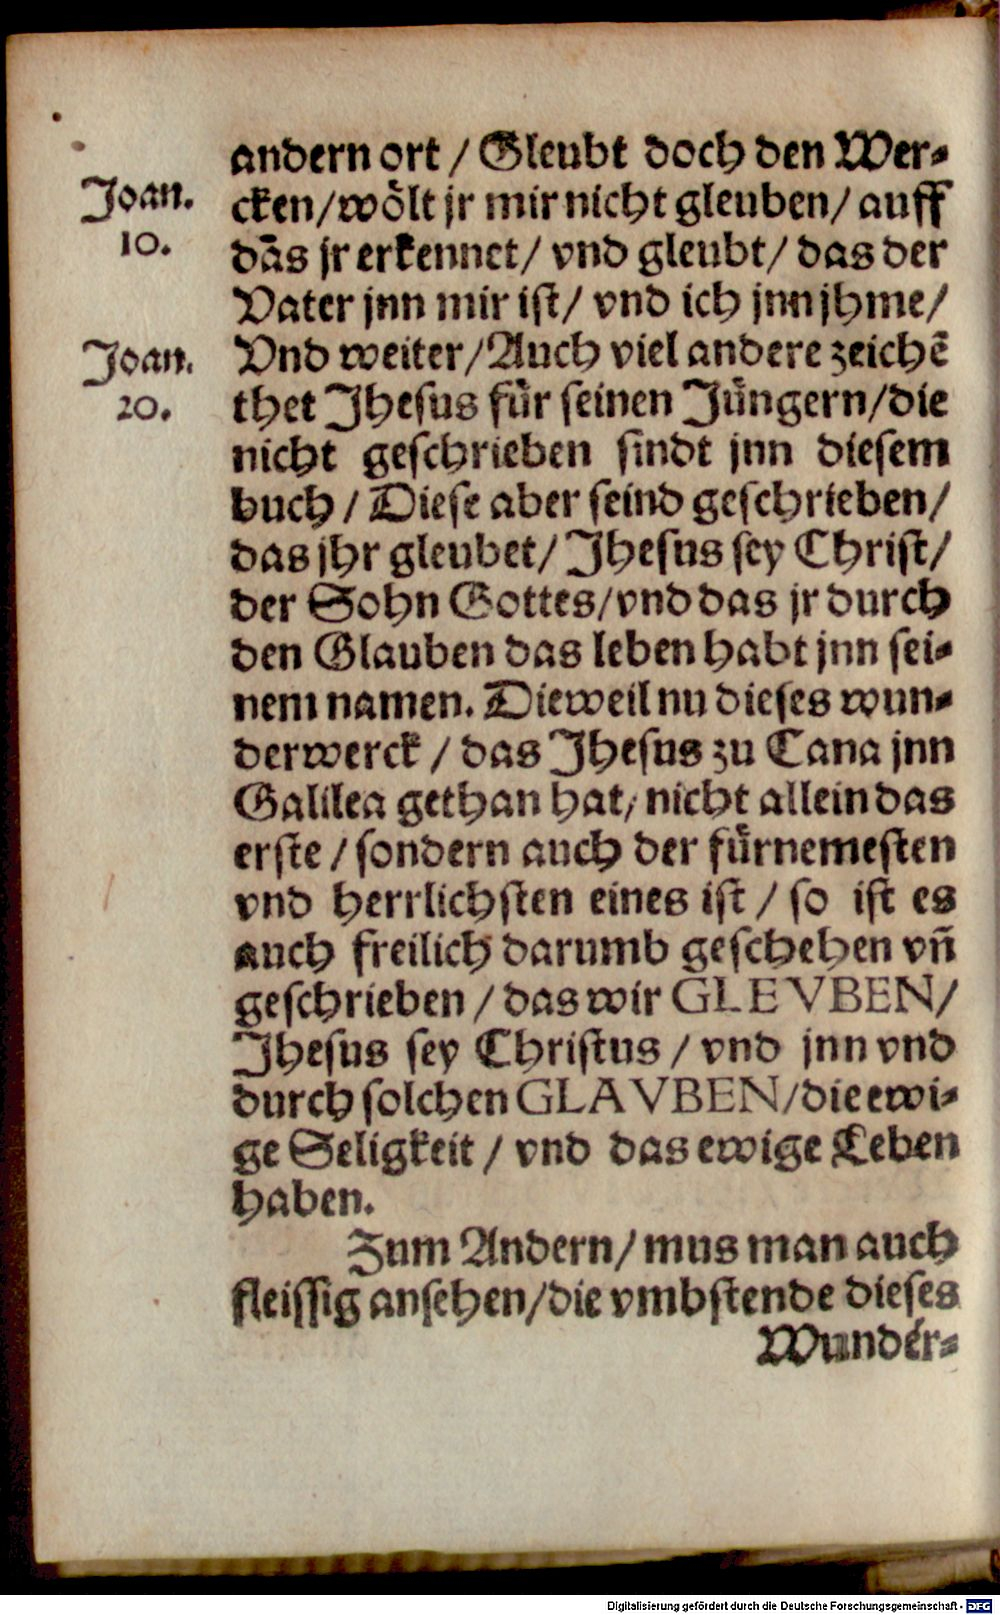 andern ort / Gleubt doch den Wer⸗
Joan.
10.
cken/woͤlt jr mir nicht gleuben/ auff
dās jr erkennet/ vnd gleubt/ das der
Vater jnn mir iſt/ vnd ich jnn jhme/
Joan.
20.
Vnd weiter/Auch viel andere zeichē
thet Jheſus fuͤr ſeinen Juͤngern/die
nicht geſchrieben ſindt jnn dieſem
buch / Dieſe aber ſeind geſchrieben/
das jhr gleubet/ Jheſus ſey Chriſt/
der Sohn Gottes/vnd das jr durch
den Glauben das leben habt jnn ſei⸗
nem namen. Dieweil nu dieſes wun⸗
derwerck / das Jheſus zu Cana jnn
Galilea gethan hat/ nicht allein das
erſte / ſondern auch der fuͤrnemeſten
vnd herrlichſten eines iſt / ſo iſt es
auch freilich darumb geſchehen vn̄
geſchrieben / das wir GLEVBEN/
Jheſus ſey Chriſtus / vnd jnn vnd
durch ſolchen GLAVBEN/die ewi⸗
ge Seligkeit / vnd das ewige Leben
haben.
Zum Andern/ mus man auch
fleiſſig anſehen/die vmbſtende dieſes
Wunder⸗
Digitalisierung gefördert durch die Deutsche Forschungsgemeinschaft - DFG